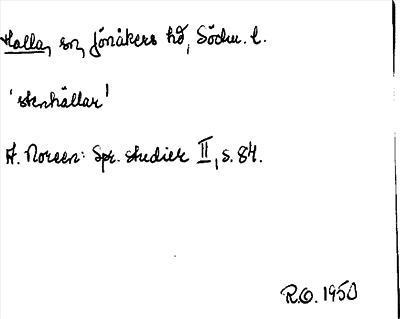 Halla, sn, Jönåkers hd, Södm. l.
'stenhällar'
A. Noreen: Spr. studier II, s. 84.
R.O. 1950